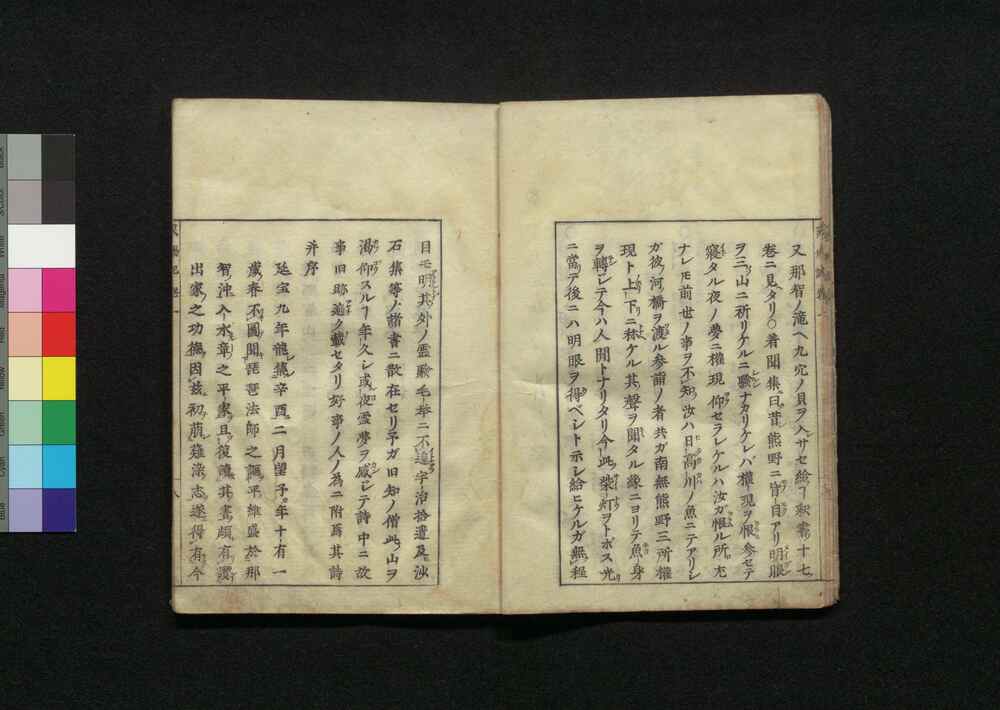 又那智ノ滝ヘ九穴ノ貝ヲ入サセ給フ釈書十七
巻ニ見タリ○著聞集曰昔熊野ニ盲目アリ明眼
ヲ三山ニ祈リケルニ験ナカリケレバ権現ヲ恨参セテ
寝タル夜ノ夢ニ権現仰セラレケルハ汝ガ恨ル所尤
ナレモ前世ノ事ヲ不知汝ハ日高川ノ魚ニテアリシ
ガ彼河橋ヲ渡ル参詣ノ者共ガ南無熊野三所権
現ト上下ニ称ケル其聲ヲ聞タル縁ニヨリテ魚身
ヲ轉シテ今ハ人間トナリタリ今此柴灯ヲトボス光
ニ當テ後ニハ明眼ヲ得ベシト示シ給ヒケルガ無程
目モ明其外ノ霊験毛挙ニ不遑宇治拾遺及沙
石集等ノ諸書ニ散在セリ予ガ旧知ノ僧此山ヲ
渇仰スルヿ年久シ或夜霊夢ヲ感ジテ詩中ニ故
事旧跡遍ク載セタリ好事ノ人ノ為ニ附爲其詩
并序
延宝九年龍集辛酉二月望子年十有一
歳春不圖聞琵琶法師之謳平維盛於那
智沖入水章之平家且復讀其書頗有
出家之功徳因茲初萌薙染志遂得有今